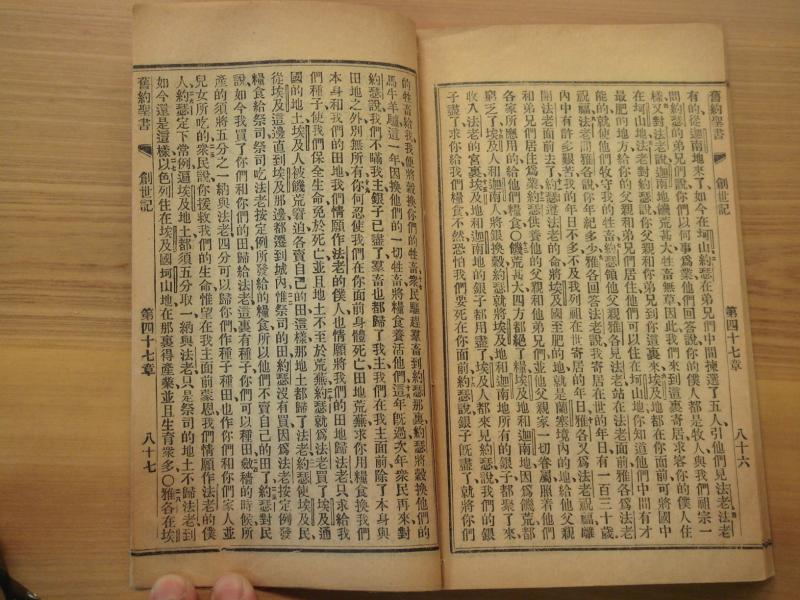 舊約聖書 創世記 第四十七章 八十六
有的、從迦南地來了、如今在坷山、約瑟在弟兄們中間揀選了五人、引他們見法老、法老
問約瑟的弟兄們說、你們以何事爲業、他們回答說、你的僕人都是牧人、與我們祖宗一
樣、又對法老說、迦南地饑荒甚大、牲畜無草、因此我們來到這裏寄居、求容你的僕人住
在坷山地、法老對約瑟說、你父親和你弟兄到你這裏來、埃及地都在你面前、可將國中
最肥的地方給你的父親和弟兄們居住、他們可以住在坷山地、你知道他們中間有才
能的、就使他們牧守我的牲畜、約瑟領他父親雅各見法老、站在法老面前、雅各爲法老
祝福、法老問雅各說、你年紀多少、雅各回答法老說、我寄居在世的年日有一百三十歲、
內中有許多艱苦、我的年日不多、不及我列祖在世寄居的年日、雅各又爲法老祝福、離
開法老面前去了、約瑟遵法老的命、將埃及國至肥的地就是蘭塞境內的地、給他父親
和弟兄們居住爲業、約瑟供養他的父親和他弟兄們、並他父親家一切眷屬、照着他們
各家所應用的給他們糧食、○饑荒甚大、四方都絕了糧、埃及地和迦南地、因饑荒都
窮乏了、埃及人和迦南人將銀換穀、約瑟就將埃及地和迦南地所有的銀子都聚了來、
收入法老的宮裏、埃及地和迦南地的銀子都用盡了、埃及人都來見約瑟說、我們的銀
子盡了、求你給我們糧食、不然恐怕我們要死在你面前、約瑟說、銀子旣盡了、就將你們
的牲畜給我、我便將穀換你們的牲畜、衆民驅趕羣畜到約瑟那裏、約瑟將穀換他們的
馬牛羊驢、這一年因換他們的一切牲畜、將糧食養活他們、這年旣過、次年衆民再來對
約瑟說、我們不瞞我主、銀子已盡了、羣畜也都歸了我主、我們在我主面前、除了本身與
田地之外、別無所有、你何忍使我們在你面前身體死亡、田地荒蕪、求你用糧食換我們
本身和我們的田地、我們情願作法老的僕人、也情願將我們的田地歸法老、只求給我
們種子、使我們保全生命、免於死亡、並且地土不至於荒蕪、約瑟就爲法老買了埃及通
國的地土、埃及人被饑荒窘迫、各賣自己的田、這樣那地土都歸了法老、約瑟使埃及民
從埃及這邊直到埃及那邊、都遷到城內、惟祭司的田、約瑟沒有買、因爲法老按定例發
糧食給祭司、祭司吃法老按定例所發給的糧食、所以他們不賣自己的田了、約瑟對民
說、如今我買了你們和你們的田、歸給法老、這裏有種子、你們可以種田、斂穡的時候、所
產的須將五分之一納與法老、四分可以歸你們作種子種田、也作你們和你們家人並
兒女所吃的、衆民說、你援救我們的生命、惟望在我主面前蒙恩、我們情願作法老的僕
人、約瑟定下常例、通埃及地土、都須五分取一納與法老、只是祭司的地土不歸法老、到
如今還是這樣、以色列住在埃及國坷山地、在那裏得產業、並且生育衆多、○雅各在埃
舊約聖書 創世記 第四十七章 八十七